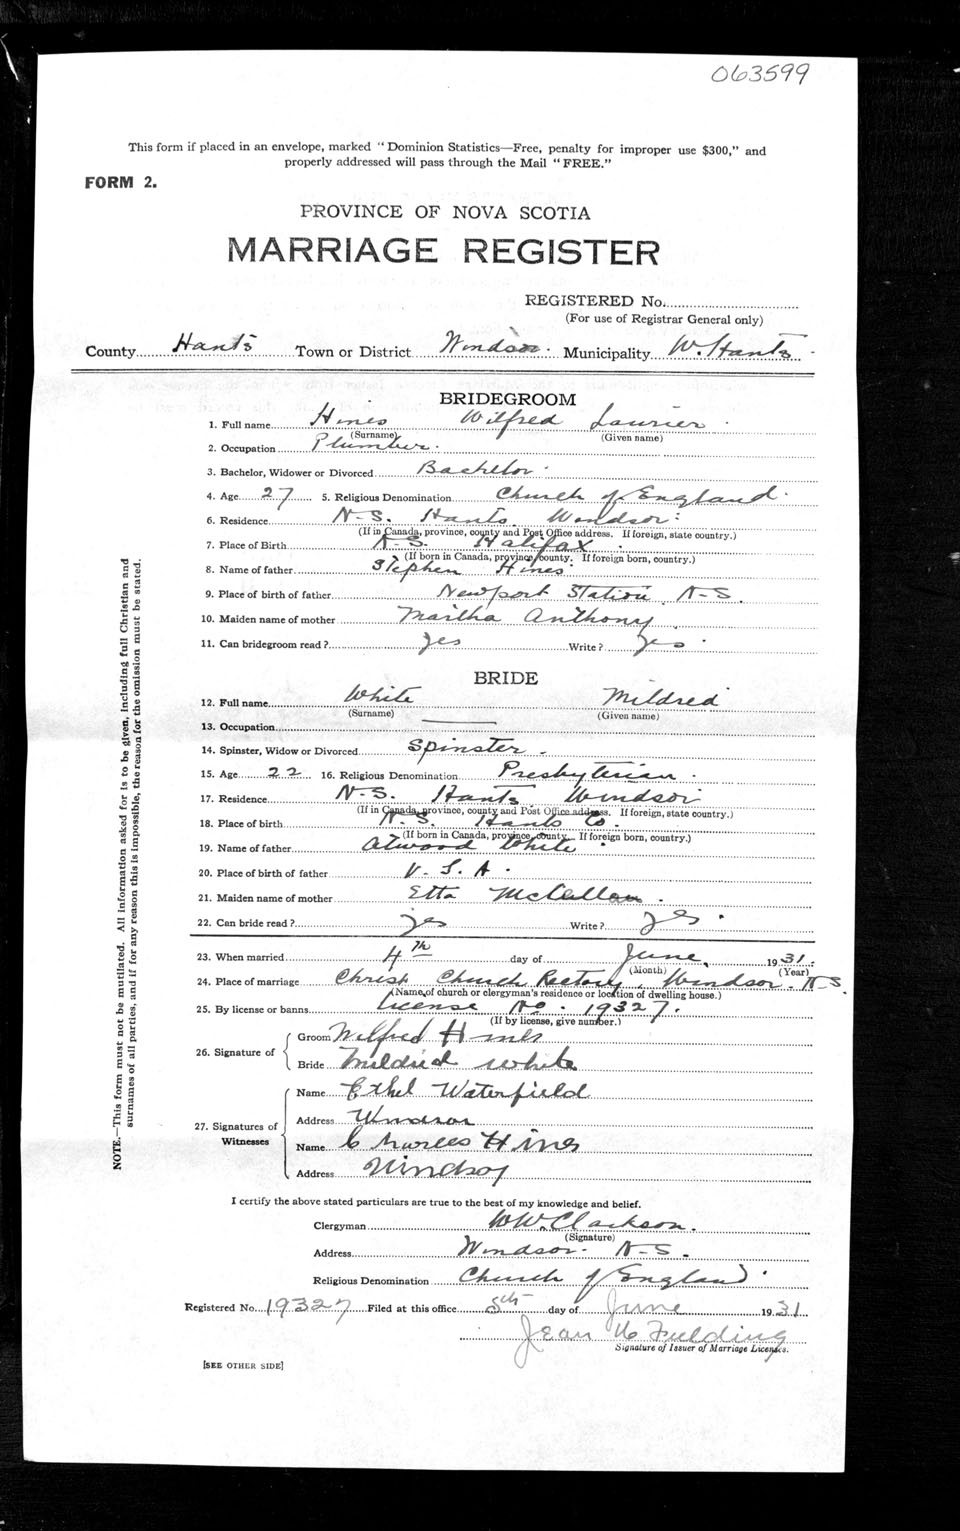 063599
This form if placed in an envelope, marked "Dominion Statistics—Free, penalty for improper use $300," and
properly addressed will pass through the Mail "FREE."
FORM 2.
PROVINCE OF NOVA SCOTIA
MARRIAGE REGISTER
REGISTERED No.
(For use of Registrar General only)
County Hants Town or District Windsor. Municipality W. Hants.
BRIDEGROOM
1. Full name Hines Wilfred Laurier.
(Surname) (Given name)
2. Occupation Plumber.
3. Bachelor, Widower or Divorced Bachelor.
4. Age 27 5. Religious Denomination Church of England.
6. Residence N-S. Hants. Windsor.
(If in Canada, province, county and Post Office address. If foreign, state country.)
7. Place of Birth N.S. Halifax.
(If born in Canada, province county. If foreign born, country.)
8. Name of father Stephen Hines.
9. Place of birth of father Newport Station. N-S.
10. Maiden name of mother Martha Anthony.
11. Can bridegroom read? yes Write? yes.
BRIDE
12. Full name White Mildred
(Surname) (Given name)
13. Occupation —
14. Spinster, Widow or Divorced Spinster.
15. Age 22 16. Religious Denomination Presbyterian.
17. Residence N-S. Hants Windsor
(If in Canada, province, county and Post Office address. If foreign, state country.)
18. Place of birth N.S. Hants Co.
(If born in Canada, province county. If foreign born, country.)
19. Name of father Atwood White.
20. Place of birth of father U.S.A.
21. Maiden name of mother Etta McLellan.
22. Can bride read? yes Write? yes.
23. When married 4th day of June, 1931.
(Month) (Year)
24. Place of marriage Christ Church Rectory, Windsor. N-S.
(Name of church or clergyman's residence or location of dwelling house.)
25. By license or banns License No. 19327.
(If by license, give number.)
26. Signature of
Groom Wilfred Hines
Bride Mildred White
27. Signatures of Witnesses
Name Ethel Waterfield
Address Windsor
Name Charles Hines
Address Windsor
I certify the above stated particulars are true to the best of my knowledge and belief.
Clergyman W.W. Clarkson.
(Signature)
Address Windsor. N-S.
Religious Denomination Church of England.
Registered No. 19327 Filed at this office 5th day of June 1931
Jean Fielding
Signature of Issuer of Marriage Licenses.
[SEE OTHER SIDE]
NOTE.—This form must not be mutilated. All information asked for is to be given, including full Christian and
surnames of all parties, and if for any reason this is impossible, the reason for the omission must be stated.